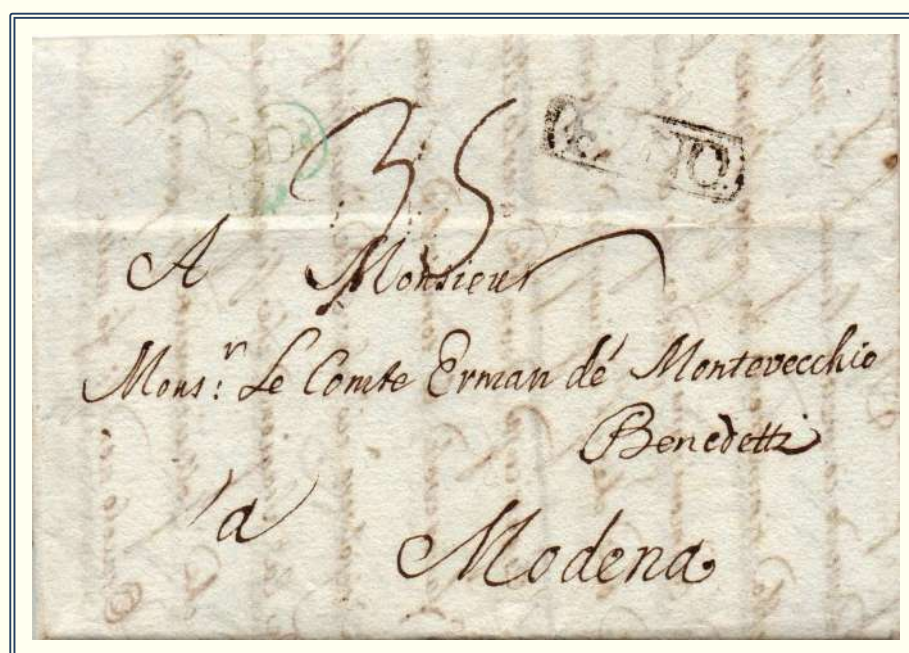 35
A Monsieur
Mons:r Le Comte Erman dé Montevecchio
Benedetti
a
Modena